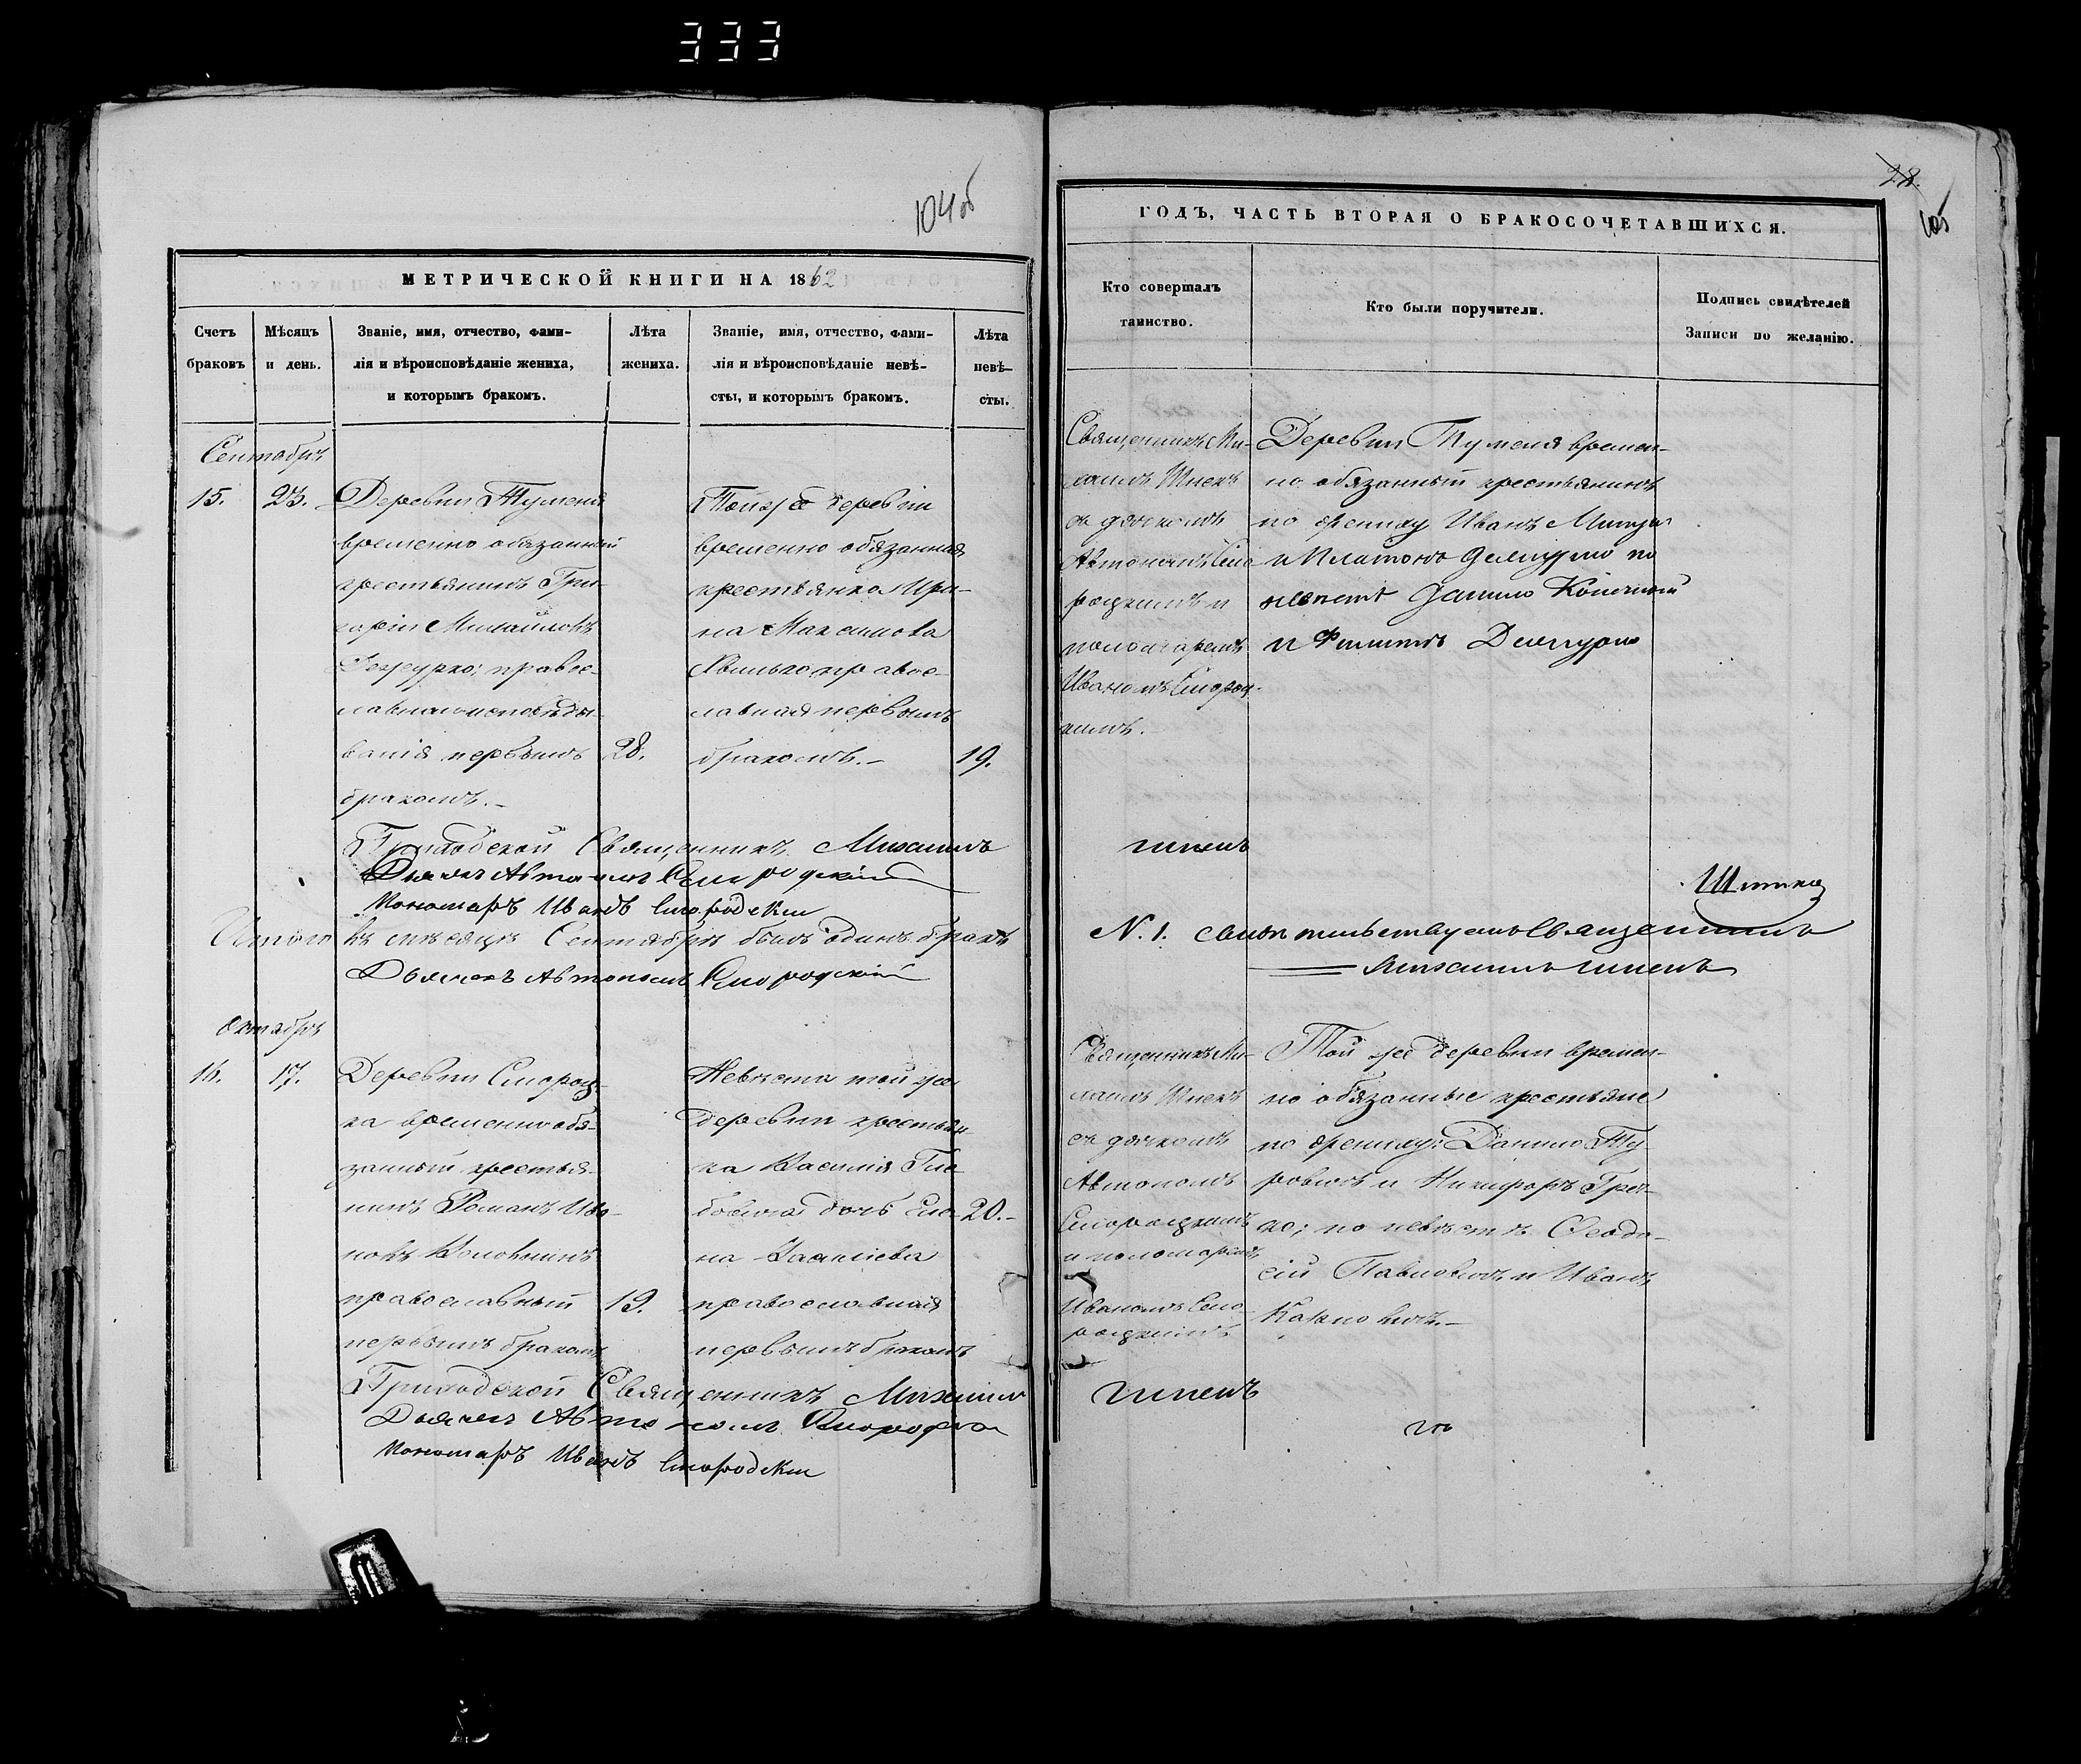 333
104об
МЕТРИЧЕСКОЙ КНИГИ НА 1862
Счетъ браковъ.
Мѣсяцъ и день.
Званіе, имя, отчество, фами-
лія и вѣроисповѣданіе жениха,
и которымъ бракомъ.
Лѣта
жениха.
Званіе, имя, отчество, фами-
лія и вѣроисповѣданіе невѣ-
сты, и которымъ бракомъ.
Лѣта
невѣ-
сты.
Сентябрь
15.
23.
Деревни Туменя
временно обязанный
крестьянинъ Гри-
горій Михайловъ
правос-
лавнаго исповѣды-
ванія первымъ
бракомъ.-
28.
Той же деревни
временно обязанная
крестьянка Ири-
на Максимова
правос-
лавная первымъ
бракомъ.-
19.
Приходской Священникъ Михаилъ
Дьячекъ Автономъ Смородскій
Пономаръ Иванъ Смородскій
Итого въ месяцѣ Сентябрѣ былъ одинъ бракъ
Дьячекъ Автономъ Смородскій
Октябрь
16.
17.
Деревни Смород-
ка временно обя-
занный крестья-
нинъ Романъ Ива-
новъ
православный
первымъ бракомъ
19.
Невѣста той же
деревни крестьян-
ка Василія
дочь
Васильева
православная
первымъ бракомъ
20.-
Приходской Священникъ Михаилъ
Дьячекъ Автономъ
Пономаръ Иванъ Смородскій
28.
105
ГОДЪ, ЧАСТЬ ВТОРАЯ О БРАКОСОЧЕТАВШИХСЯ.
Кто совершалъ
таинство.
Кто были поручители.
Подпись свидѣтелей
Записи по желанію.
Священникъ Ми-
хаилъ Шпекъ
съ дячкомъ
Автономъ Смо
родскимъ и
пономаремъ
Иваномъ Смород-
скимъ.
Деревни Туменя времен-
но обязанный крестьянинъ
по жениху Иванъ
и Платонъ по
невестѣ Данило
и Филипъ
Шпекъ
N. 1. свидѣтельствую Священникъ
Михаилъ Шпекъ
Священникъ Ми-
хаилъ Шпекъ
съ дячкомъ
Автономъ
Смородскимъ
и пономаремъ
Иваномъ Смо-
родскимъ
Той же деревни времен-
но обязанные крестьяне
по жениху: Данило Ту-
ровичъ и Никифоръ
по невѣстѣ Феодо-
сій Павловичъ и Иванъ
Карповичъ.-
Шпекъ